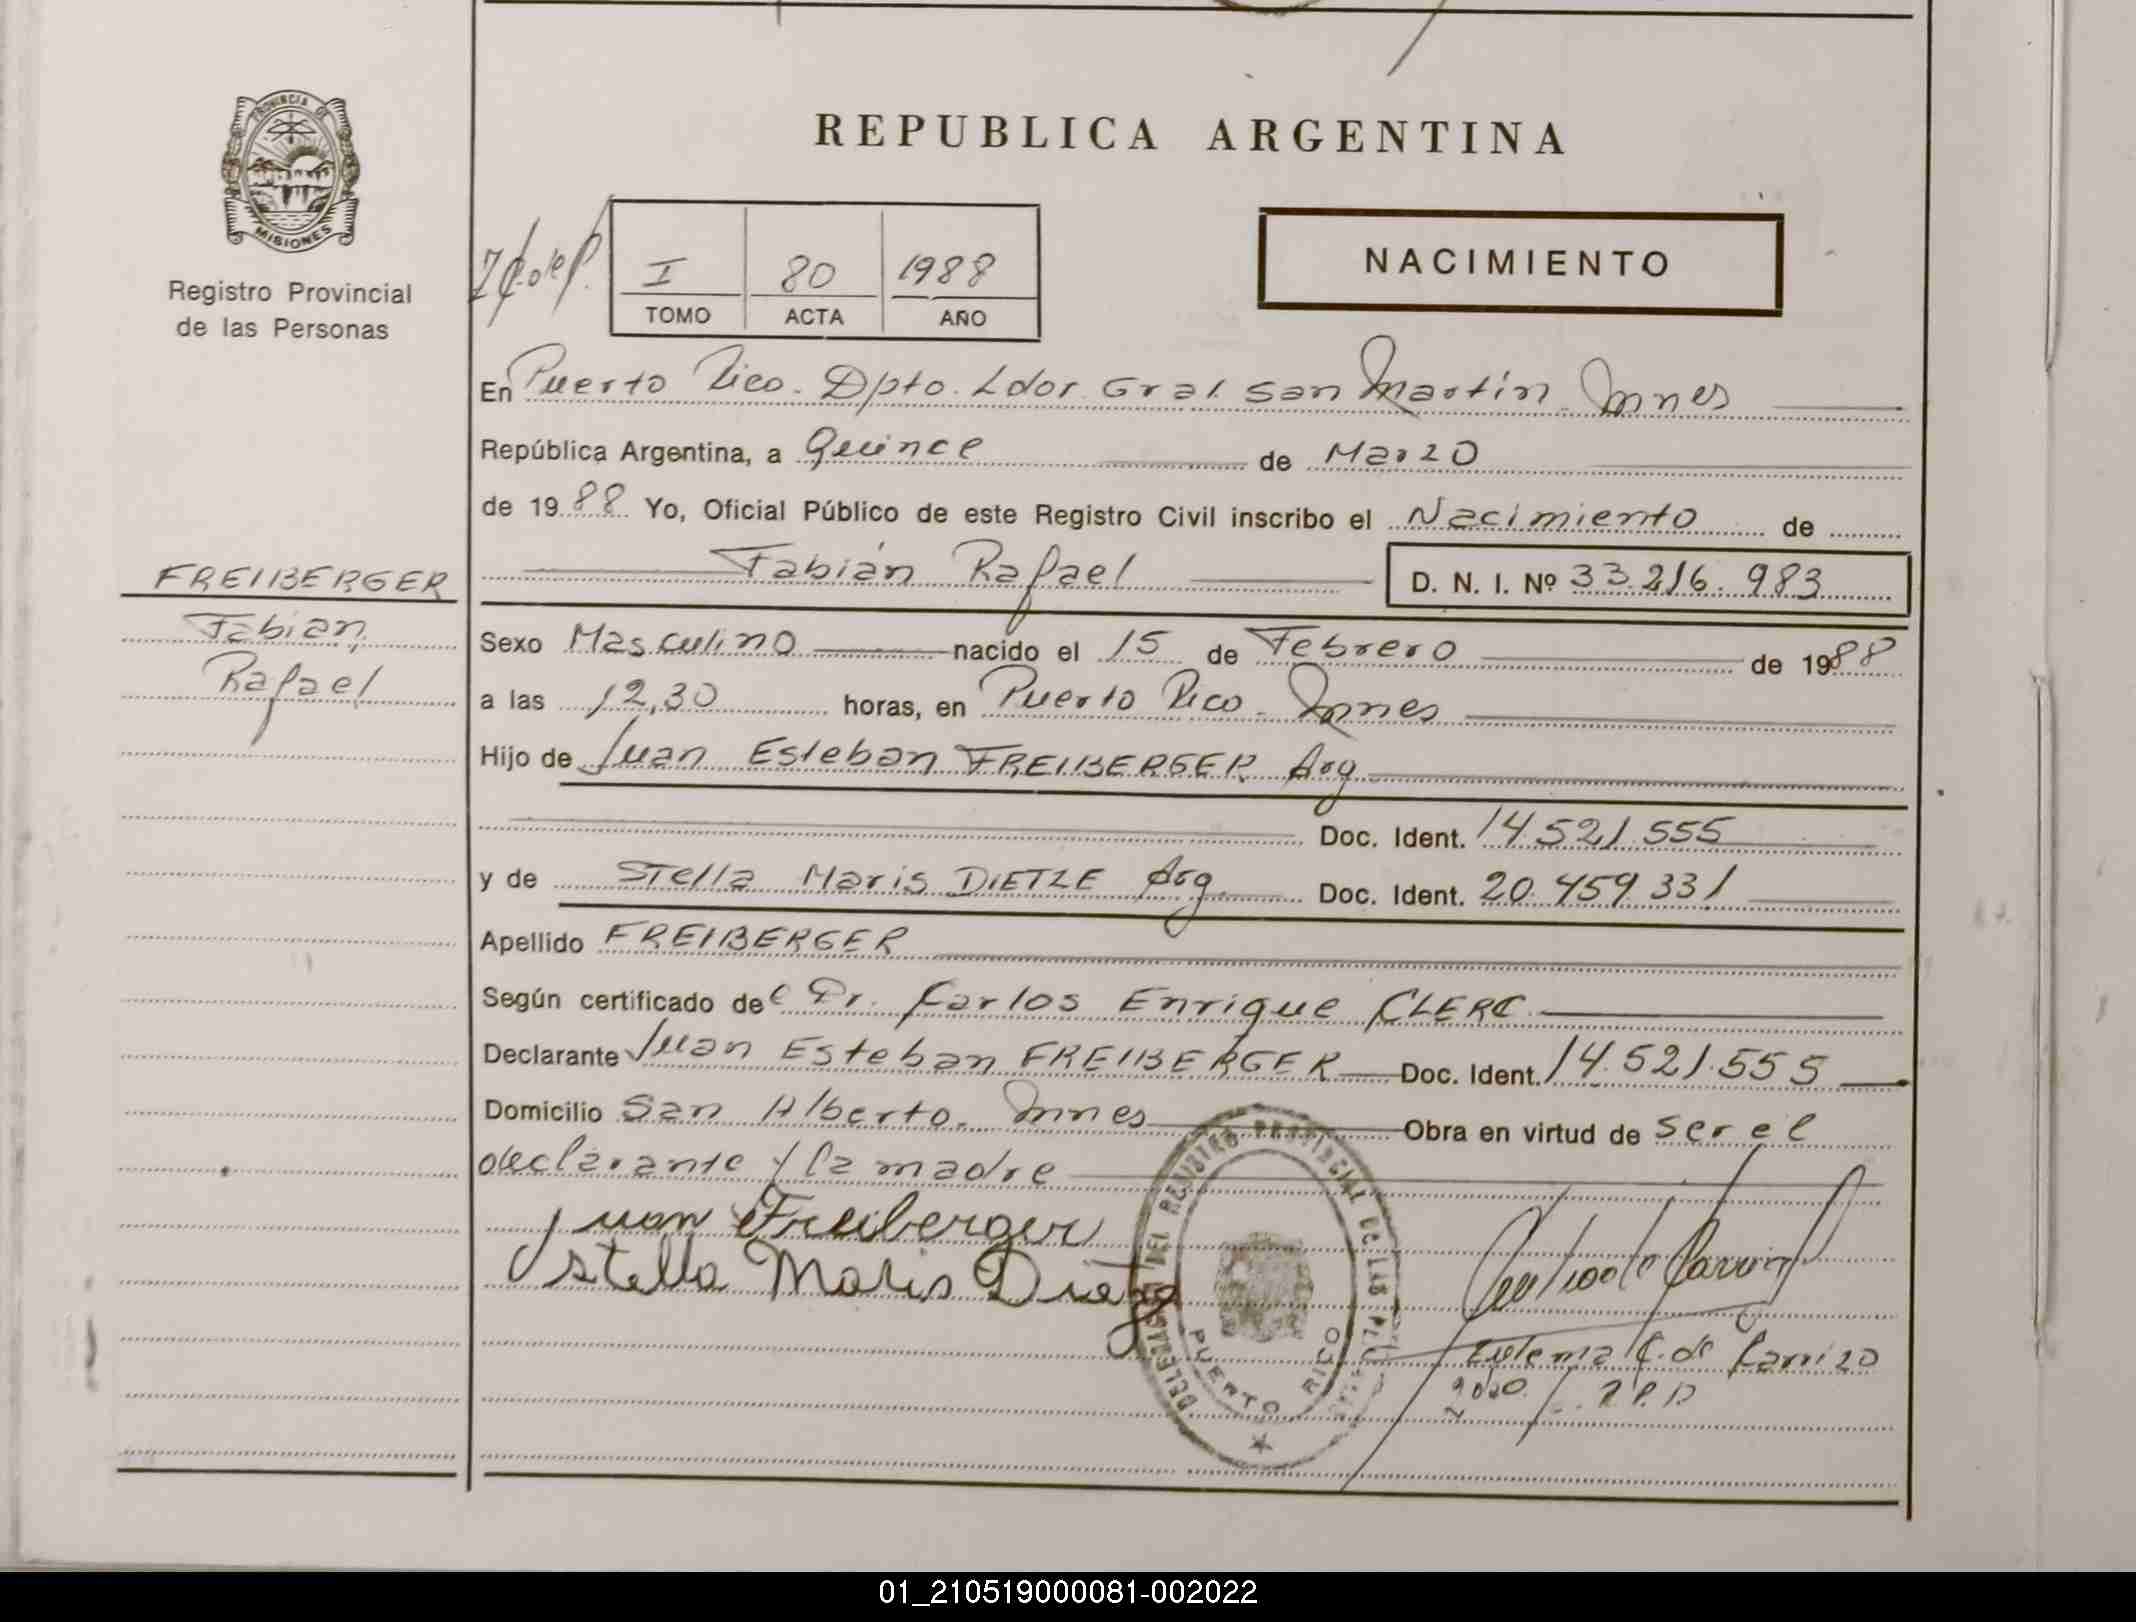 PROVINCIA DE
MISIONES
Registro Provincial
de las Personas
REPUBLICA ARGENTINA
I 80 1988
TOMO ACTA AÑO
NACIMIENTO
En Puerto Rico. Dpto. Ldor. Gral. San Martín. Mnes
República Argentina, a Quince de Marzo
de 1988 Yo, Oficial Público de este Registro Civil inscribo el Nacimiento de
Fabián Rafael D. N. I. Nº 33.216.983
FREIBERGER
Fabián
Rafael
Sexo Masculino nacido el 15 de Febrero de 1988
a las 12,30 horas, en Puerto Rico. Mnes
Hijo de Juan Esteban FREIBERGER Arg
Doc. Ident. 14.521.555
y de Stella Maris DIETZE Arg. Doc. Ident. 20.459.331
Apellido FREIBERGER
Según certificado del Dr. Carlos Enrique CLERC
Declarante Juan Esteban FREIBERGER Doc. Ident. 14.521.555
Domicilio San Alberto. Mnes Obra en virtud de ser el
declarante y la madre
Juan Freiberger
Stella Maris
DEL REGISTRO PROVINCIAL DE LAS
PUERTO RICO
C. de Carrizo
01_210519000081-002022